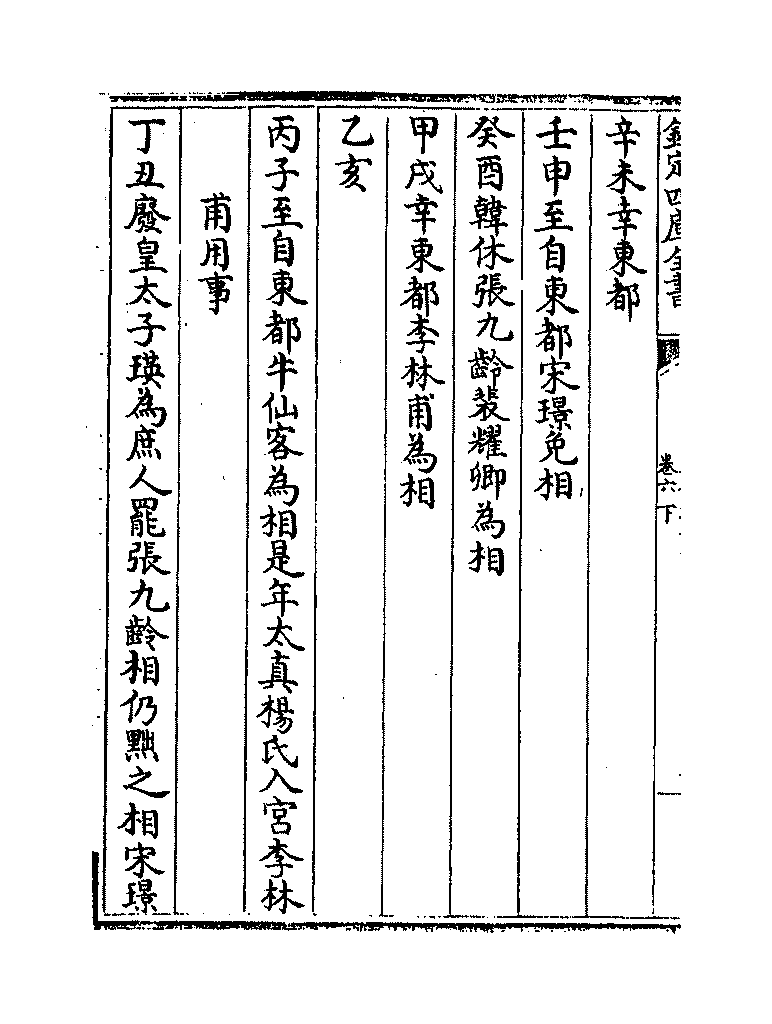 欽定四庫全書
卷六下
辛未幸東都
壬申至自東都宋璟免相
癸酉韓休張九齡裴耀卿為相
甲戌幸東都李林甫為相
乙亥
丙子至自東都牛仙客為相是年太真楊氏入宮李林
甫用事
丁丑廢皇太子瑛為庶人罷張九齡相仍黜之相宋璟